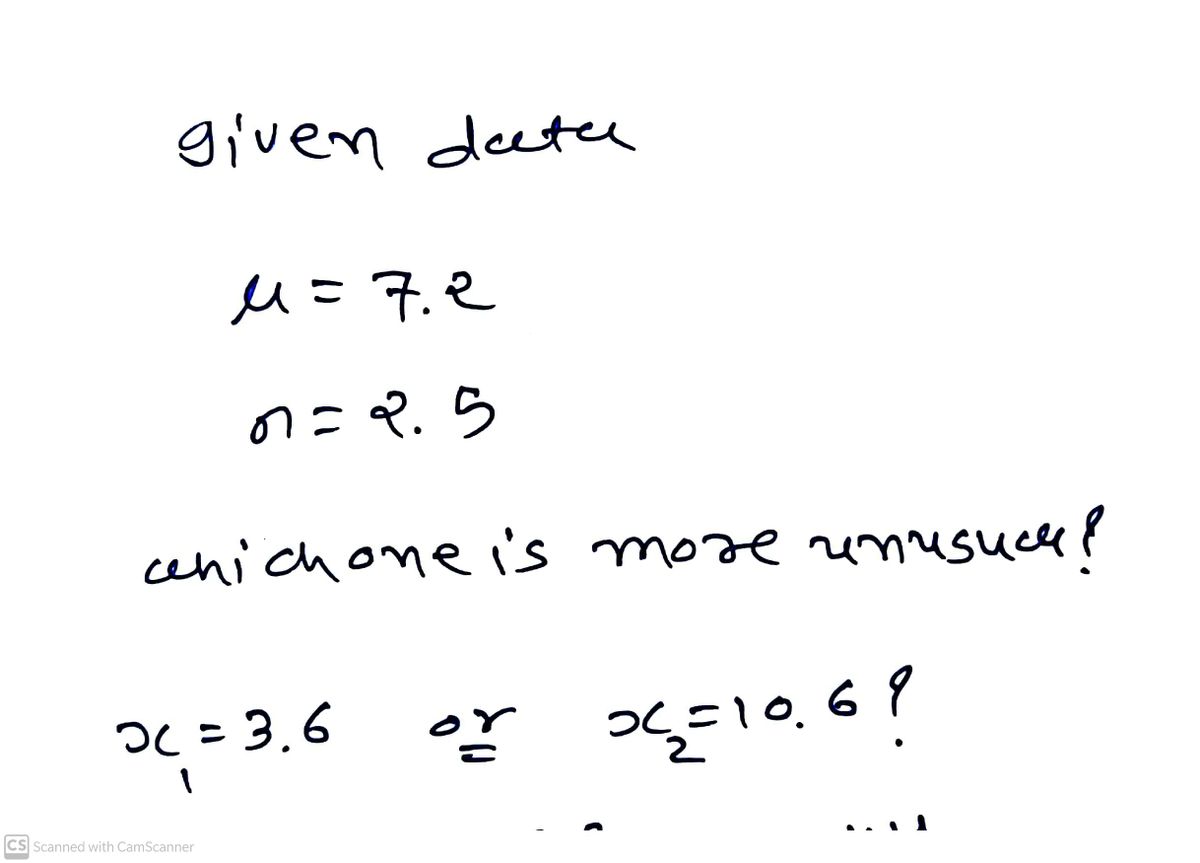 given data
μ = 7.2
σ = 2.5
which one is more unusual?
x₁ = 3.6 or x₂ = 10.6 ?
CS Scanned with CamScanner